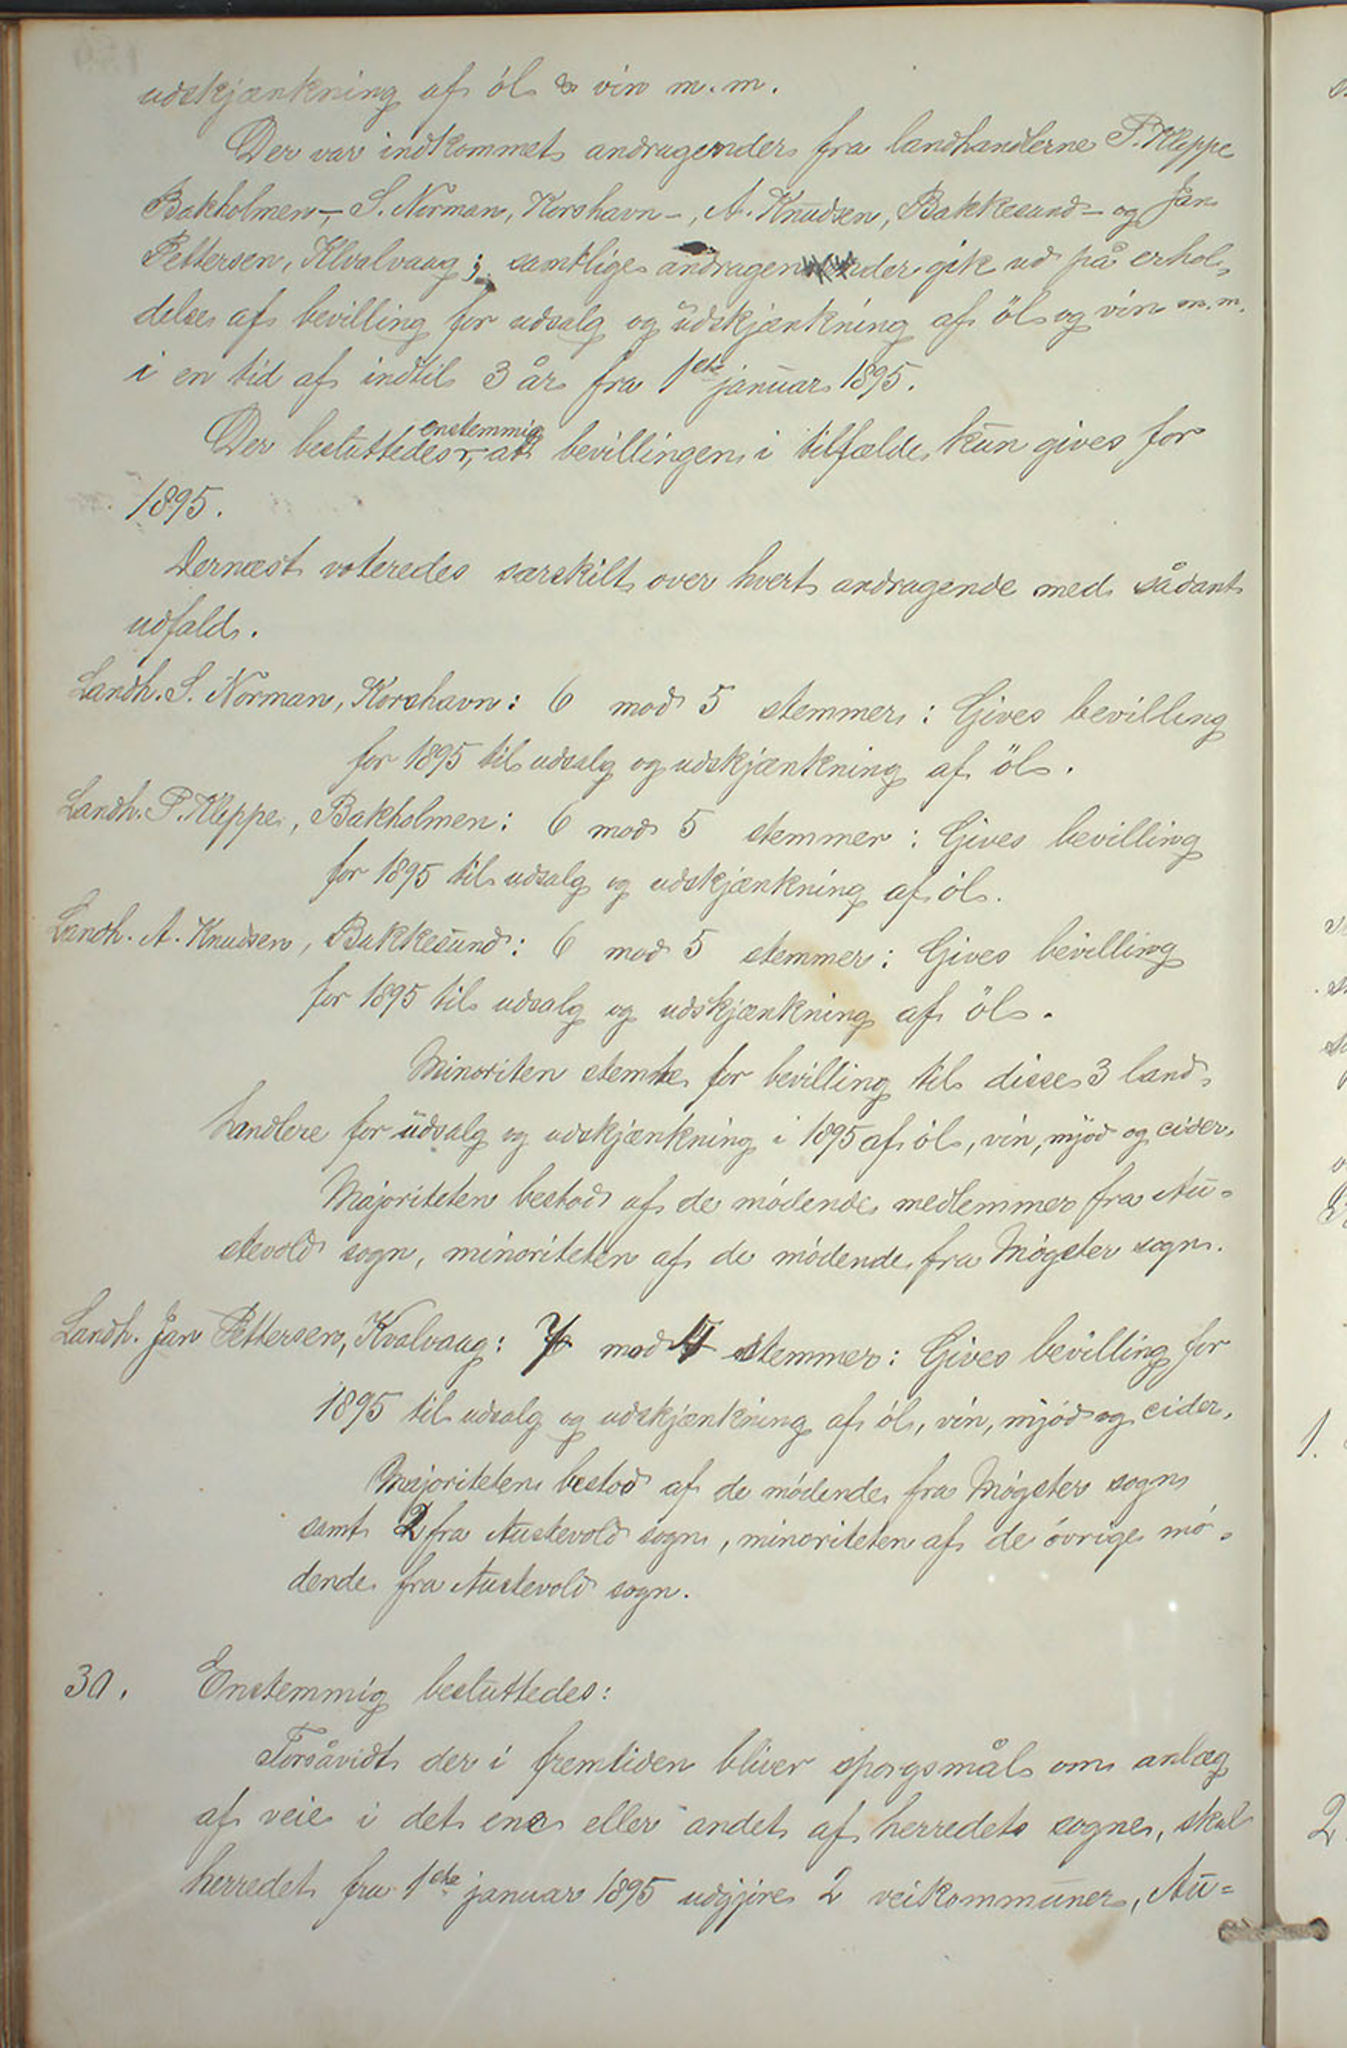 udskjænkning af öl & vin m.m.
Der var indkommet andragender fra landhandlerne P. Kleppe
Bakholmen -, S. Norman, Korshavn -, A. Knudsen, Bakkesund - og Jan
Pettersen, Kvalvaag; samtlige andragender gik ud på erhol-
delse af bevilling for udsalg og udskjænkning af öl og vin m.m.
i en tid af indtil 3 år fra 1ste januar 1895.
enstemmig
Der besluttedes, at bevillingen i tilfælde kun gives for
1895.
Dernæst voteredes særskilt over hvert andragende med sådant
udfald.
Landh. S. Norman, Korshavn: 6 mod 5 stemmer: Gives bevilling
for 1895 til udsalg og udskjænkning af öl.
Landh. P. Kleppe, Bakholmen: 6 mod 5 stemmer: Gives bevilling
for 1895 til udsalg og udskjænkning af öl.
Landh. A. Knudsen, Bakkesund: 6 mod 5 stemmer: Gives bevilling
for 1895 til udsalg og udskjænkning af öl.
Minoriten stemte for bevilling til disse 3 land-
handlere for udsalg og udskjænkning i 1895 af öl, vin, mjöd og cider.
Majoriteten bestod af de mödende medlemmer fra Au-
stevold sogn, minoriteten af de mödende fra Mögster sogn.
Landh. Jan Pettersen, Kvalvaag: 7 mod 4 stemmer: Gives bevilling for
1895 til udsalg og udskjænkning af öl, vin, mjöd og cider.
Majoriteten bestod af de mödende fra Mögster sogn
samt 2 fra Austevold sogn, minoriteten af de övrige mö-
dende fra Austevold sogn.
30. Enstemmig besluttedes:
Forsåvidt der i fremtiden bliver spörgsmål om anlæg
af veie i det ene eller andet af herredets sogne, skal
herredet fra 1ste januar 1895 udgjöre 2 veikommuner, Au-
1.
2